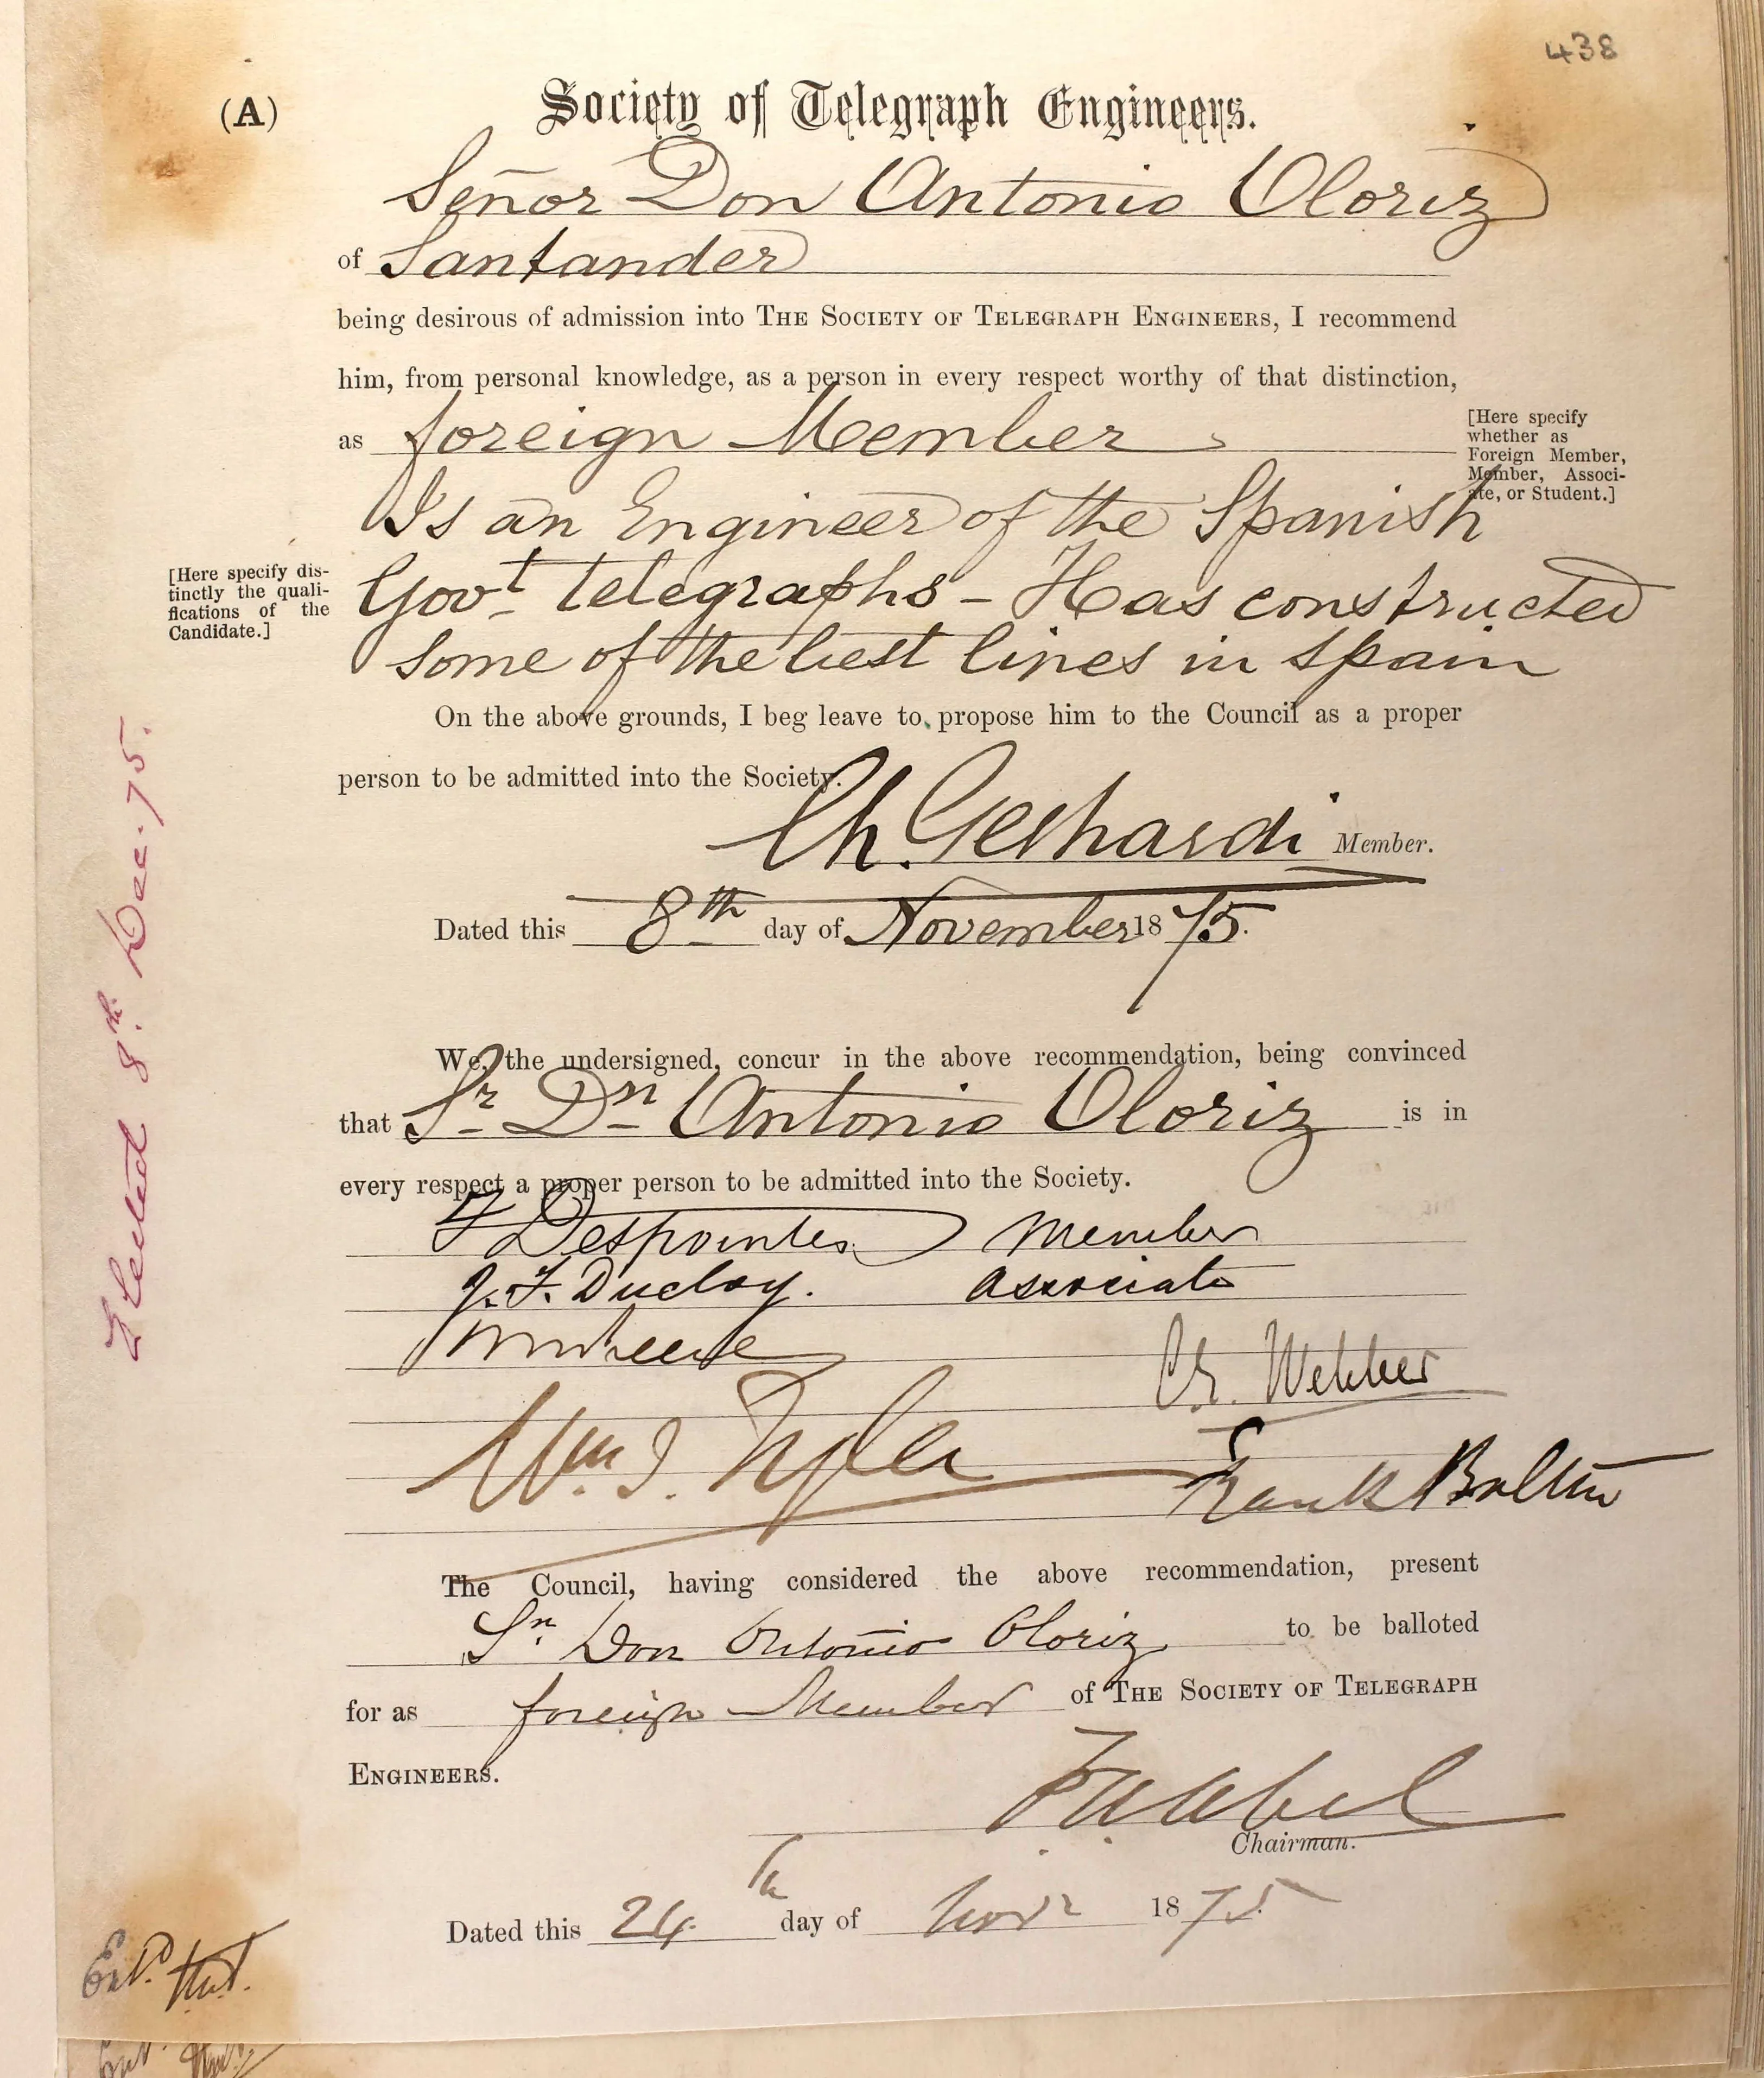 438
(A)
Society of Telegraph Engineers.
Señor Don Antonio Oloriz
of Santander
being desirous of admission into THE SOCIETY OF TELEGRAPH ENGINEERS, I recommend
him, from personal knowledge, as a person in every respect worthy of that distinction,
as foreign Member
[Here specify
whether as
Foreign Member,
Member, Associ-
ate, or Student.]
Is an Engineer of the Spanish
[Here specify dis-
tinctly the quali-
fications of the
Candidate.]
Govt telegraphs - Has constructed
some of the best lines in Spain
On the above grounds, I beg leave to propose him to the Council as a proper
person to be admitted into the Society.
Ch. Gerhardi Member.
Dated this 8th day of November 1875.
We, the undersigned, concur in the above recommendation, being convinced
that Sr Dn Antonio Oloriz is in
every respect a proper person to be admitted into the Society.
F Despointes Member
J. F. Ducloy. Associate
C. E. Webber
Wm. I. Tyler
Frank Bolton
The Council, having considered the above recommendation, present
Sn. Don Antonio Oloriz to be balloted
for as foreign Member of THE SOCIETY OF TELEGRAPH
ENGINEERS.
F. A. Abel
Chairman.
Dated this 24th day of Novr 1875
Elected 8th. Dec. 75.